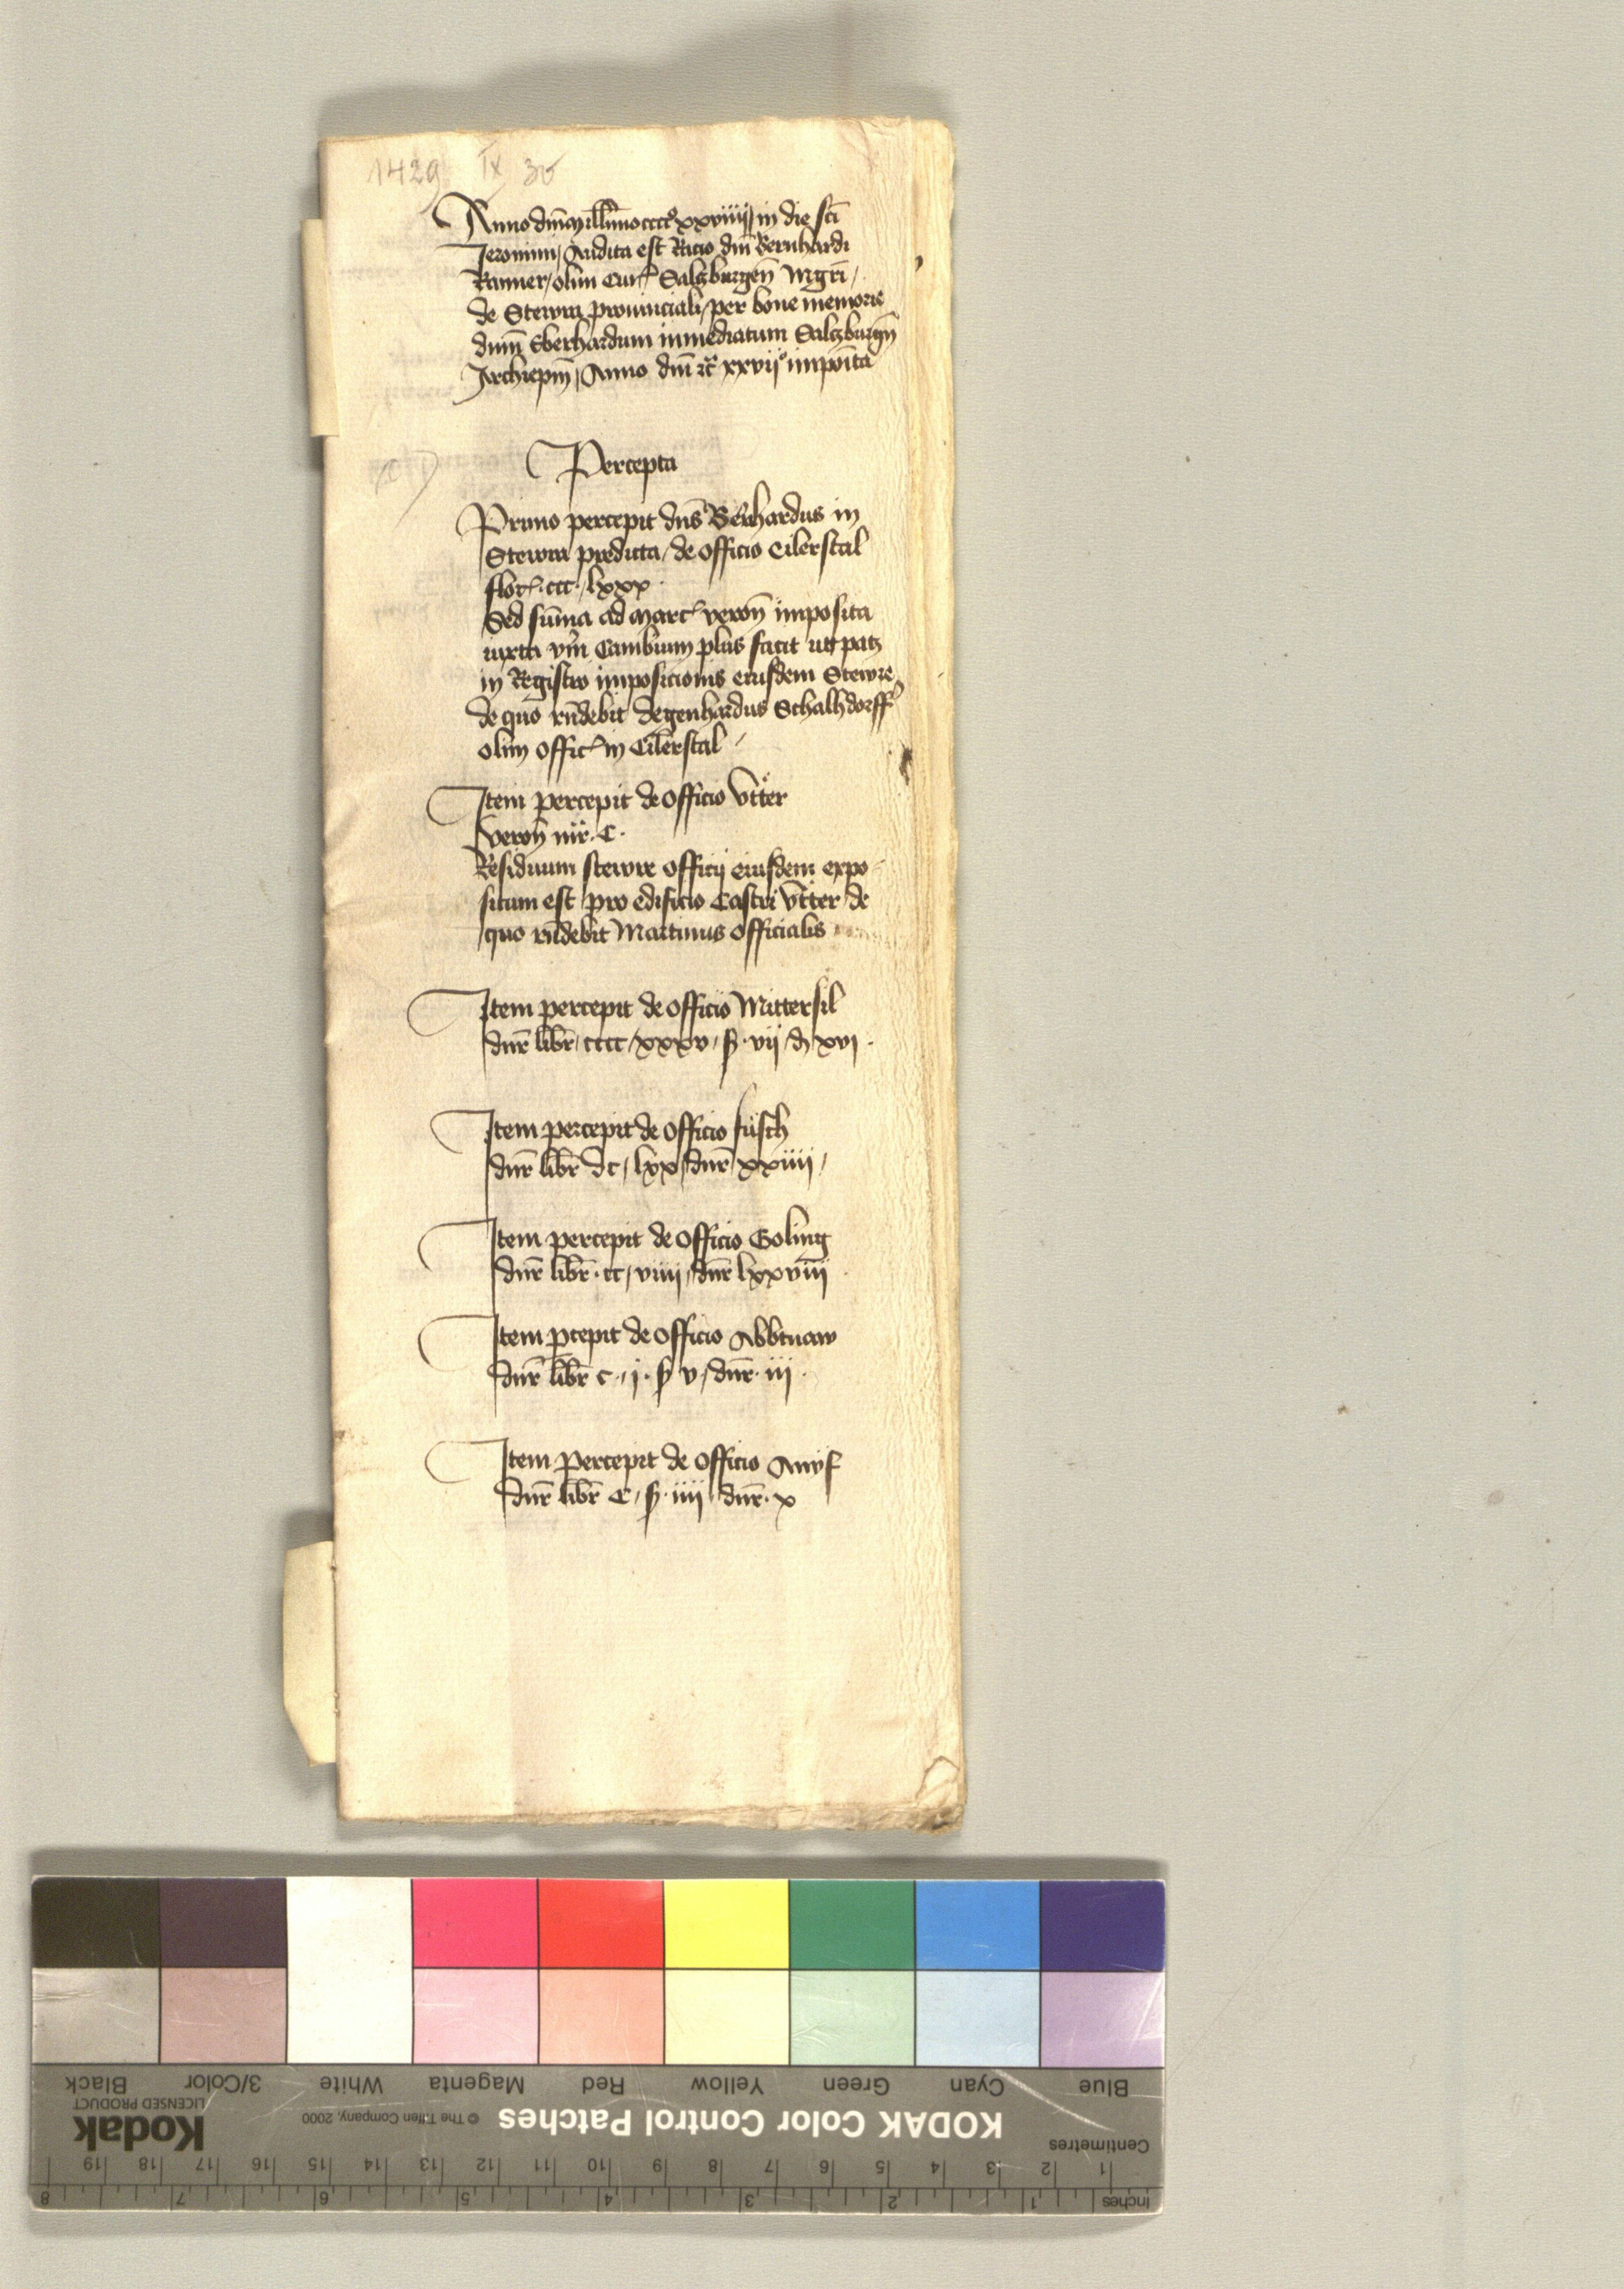 1429 IX 30
Anno dm̄ Millm̄o cccc° xxviiij in die sc̄i
Jeronimi / Audita est Racio dm̄ Bernhardi
Ramer / olim Cur̄ Salczburgen̄ Mgr̄i /
de Stewra prouinciali / per bone memorie
dnm̄ Eberhardum inmediatum Salczburgn̄
Archiepm̄ / Anno dm̄ rc̄ xxvij° impoīta
Percepta
Primo percepit dns̄ Bernhardus in
Stewra predicta / de officio Cilerstal
flor̄ · ccc · / lxxx ·
Sed sum̄a ad Marc̄ veron̄ imposita
iuxta vm̄ Cambium plus facit ut patz
in Registro imposicionis eiusdem Stewre
de quo rn̄debit Degenhardus Schalhdorff̄
olim offic̄ in Cilerstal /
Item percepit de officio Vtter
veron̄ mr̄ · C ·
Residuum stewre officij eiusdem expo
situm est pro edificio Castri Vtter de
quo rn̄debit Martinus officialis
Item percepit de officio Mittersil
dnr̄ libr̄ / cccc / xxxv / ß · vij / d xvj ·
Item percepit de officio fusch
dnr̄ libr̄ dc / lxx / dnr̄ xxiiij /
Item percepit de officio Goling
dnr̄ libr̄ · cc / viiij / dnr̄ lxxviij
Item pcepit de officio Abbtnaw
dnr̄ libr̄ c · / j · ß v / dnr̄ · iij ·
Item percepit de officio Anif
dnr̄ libr̄ C / ß · iiij / dnr̄ · x
Black
3/Color
White
Magenta
Red
Yellow
Green
Cyan
Blue
Kodak
LICENSED PRODUCT
© The Tiffen Company, 2000
KODAK Color Control Patches
Centimetres
1 2 3 4 5 6 7 8 9 10 11 12 13 14 15 16 17 18 19
Inches 1 2 3 4 5 6 7 8